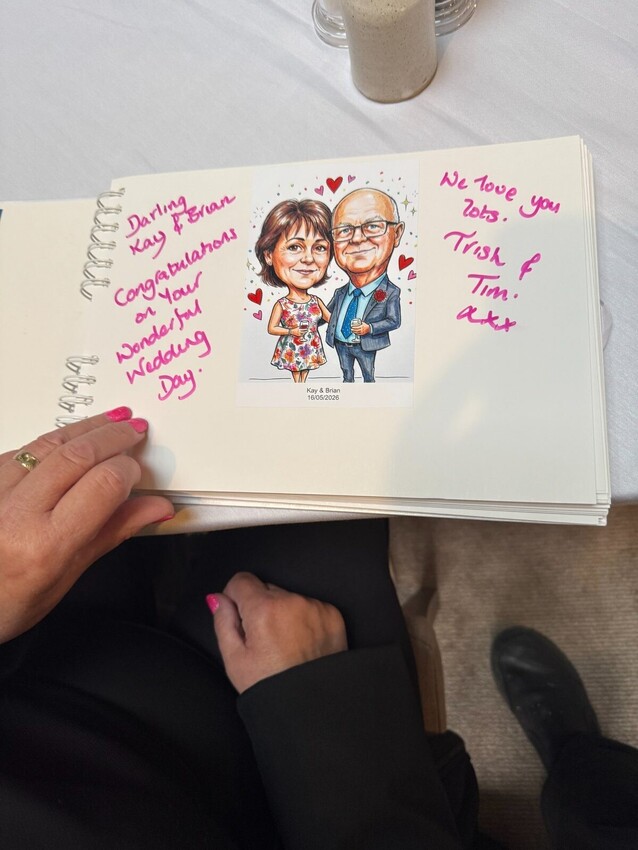 Darling
Kay & Brian
Congratulations
on your
Wonderful
Wedding
Day.
Kay & Brian
16/05/2026
We love you
lots.
Trish &
Tim.
xxx